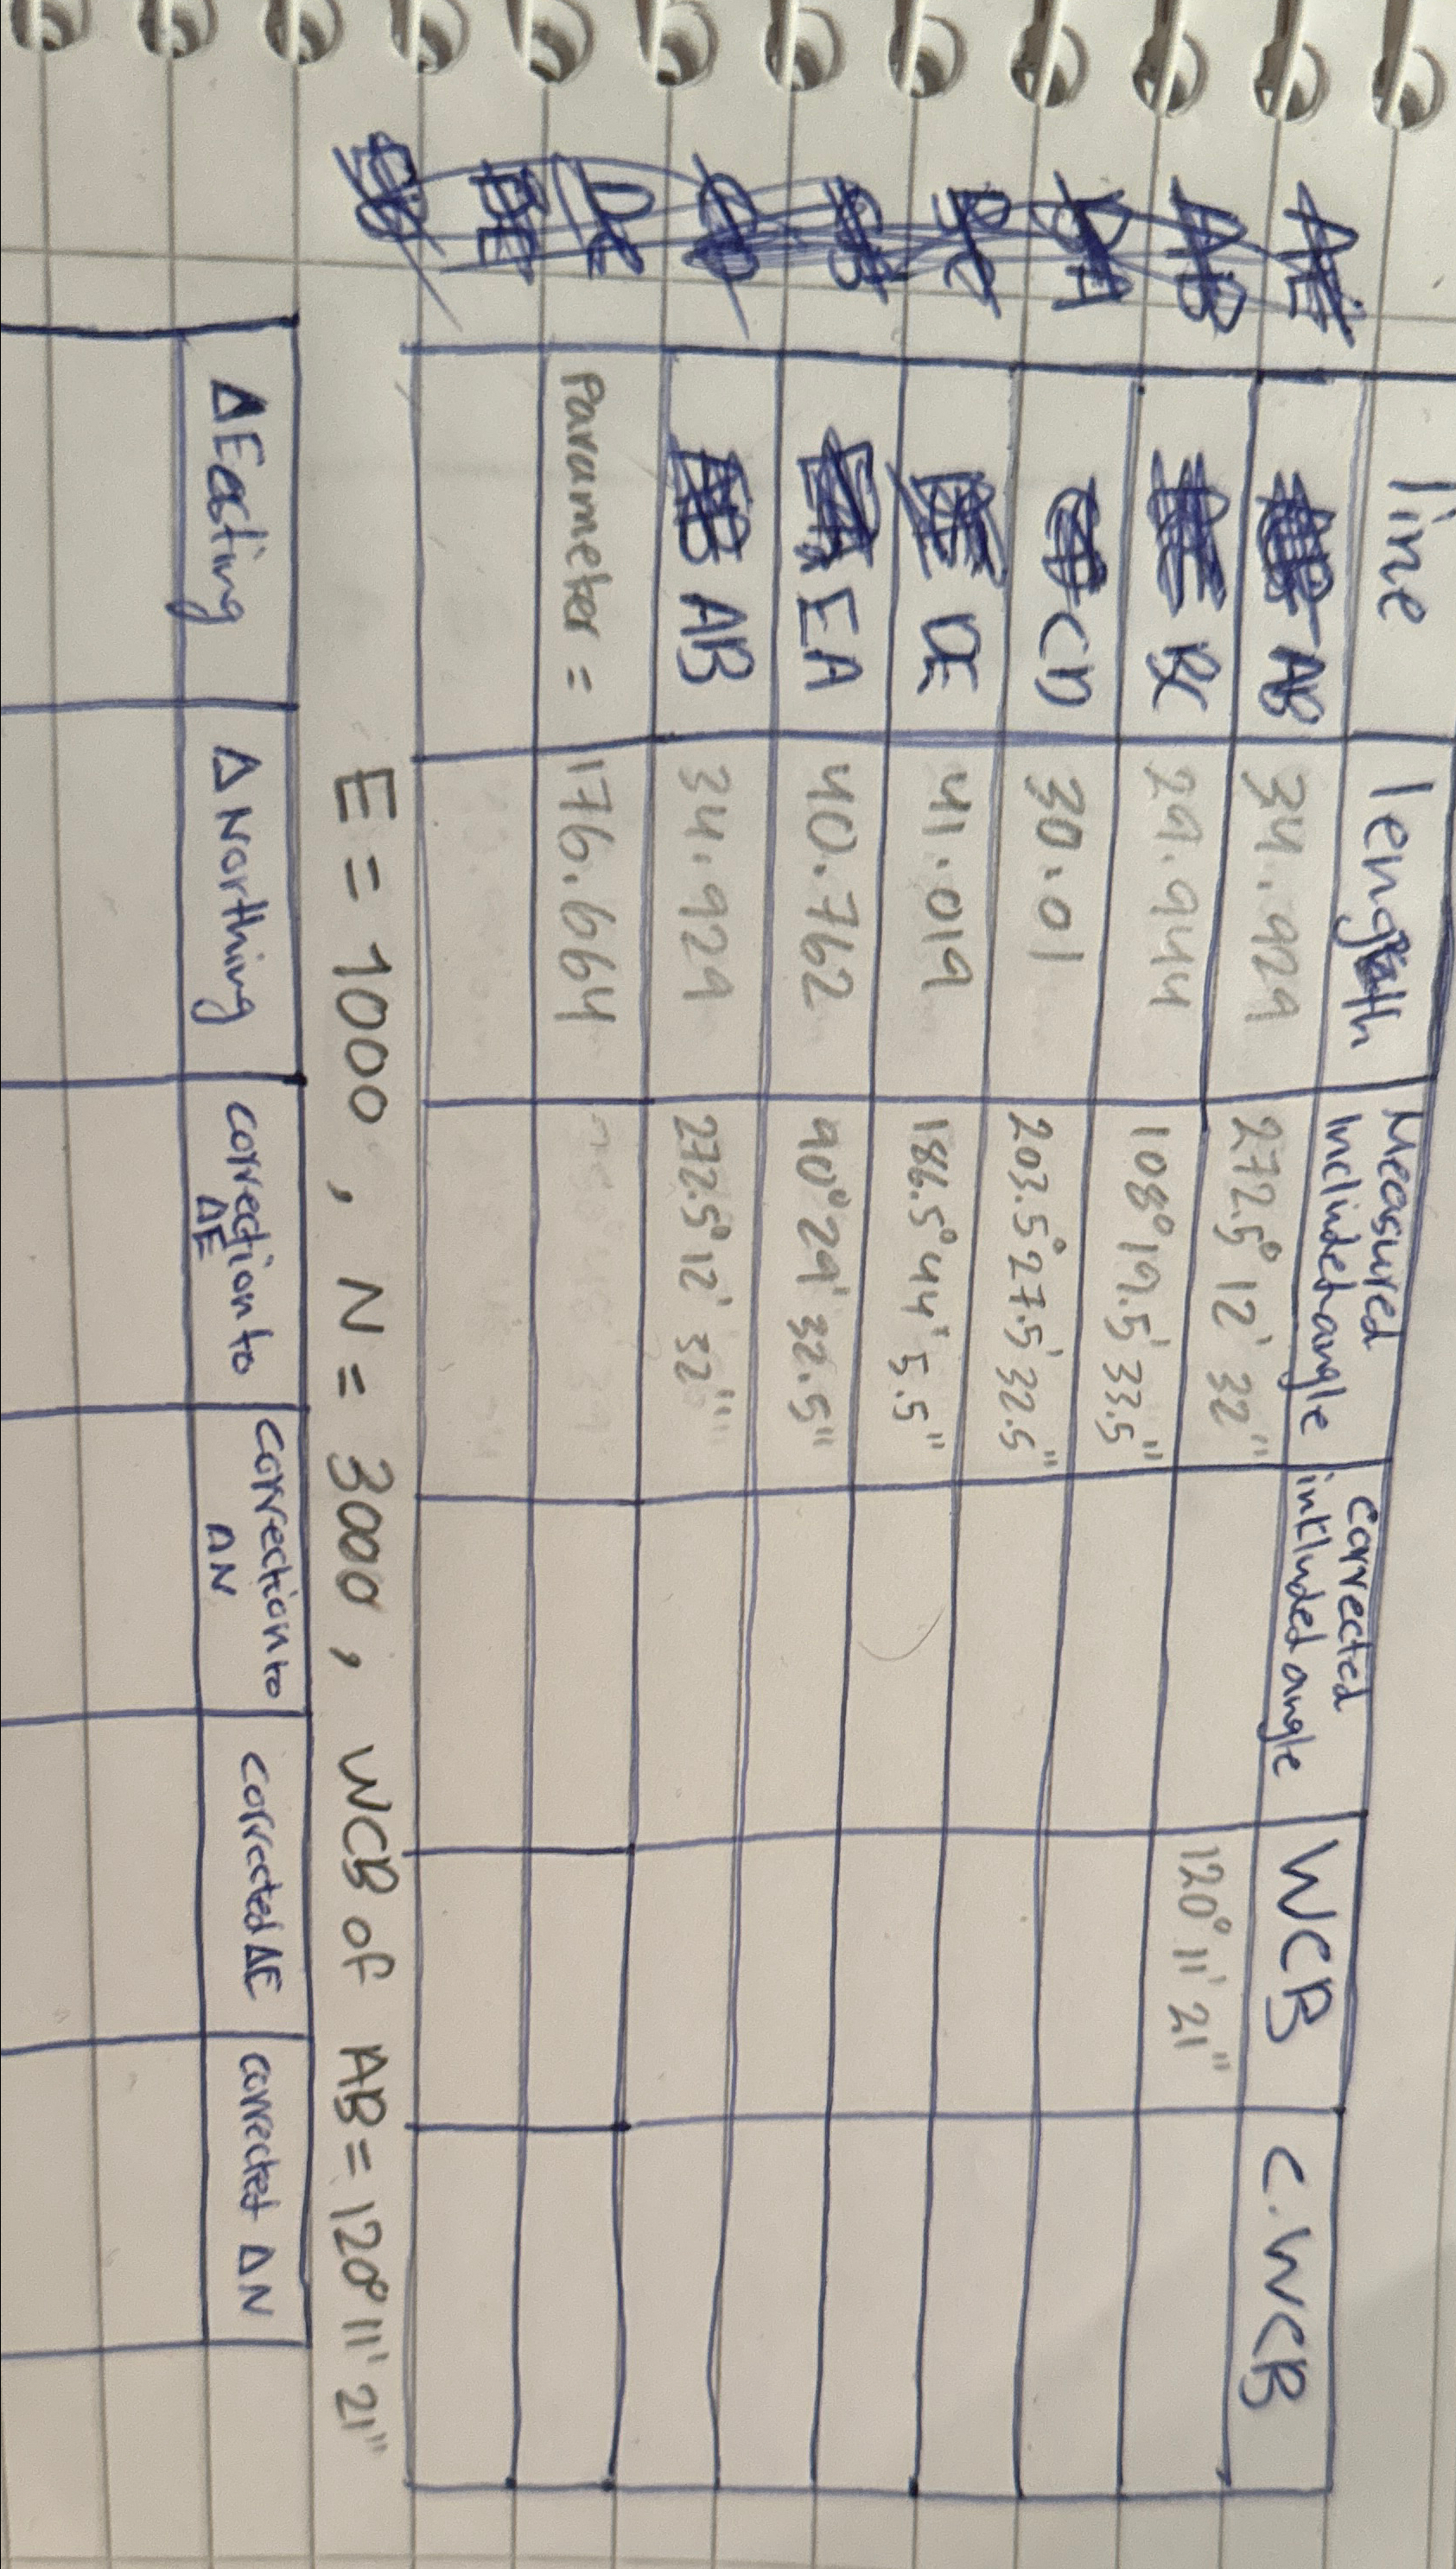 line length Measured inclindet angle corrected inkluded angle WCB C.WCB
AB 34.929 272.5° 12' 32"
BC 29.944 108° 19.5' 33.5" 120° 11' 21"
CD 30.01 203.5° 27.5' 32.5"
DE 41.019 186.5° 44' 5.5"
EA 40.762 90° 29' 32.5"
AB 34.929 272.5° 12' 32"
Parameter = 176.664
E = 1000, N = 3000, WCB of AB = 120° 11' 21"
Δ Easting Δ Northing correction to ΔE correction to ΔN corrected ΔE corrected ΔN